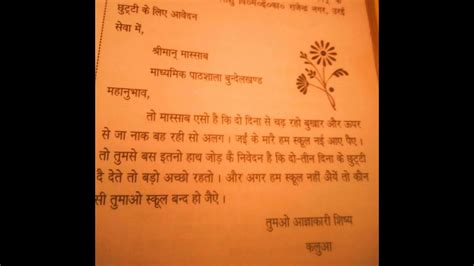 राजेन्द्र नगर, उरई
छुट्टी के लिए आवेदन
सेवा में,
श्रीमान् मास्साब
माध्यमिक पाठशाला बुन्देलखण्ड
महानुभाव,
तो मास्साब एसो है कि दो दिना से चढ़ रहो बुखार और ऊपर
से जा नाक बह रही सो अलग । जई के मारै हम स्कूल नई आए पैए ।
तो तुमसे बस इतनो हाथ जोड़ कै निवेदन है कि दो-तीन दिना के छुट्टी
दै देते तो बड़ो अच्छो रहतो । और अगर हम स्कूल नहीं अैयें तो कौन
सी तुमाओ स्कूल बन्द हो जैऐ ।
तुमओ आज्ञाकारी शिष्य
कलुआ